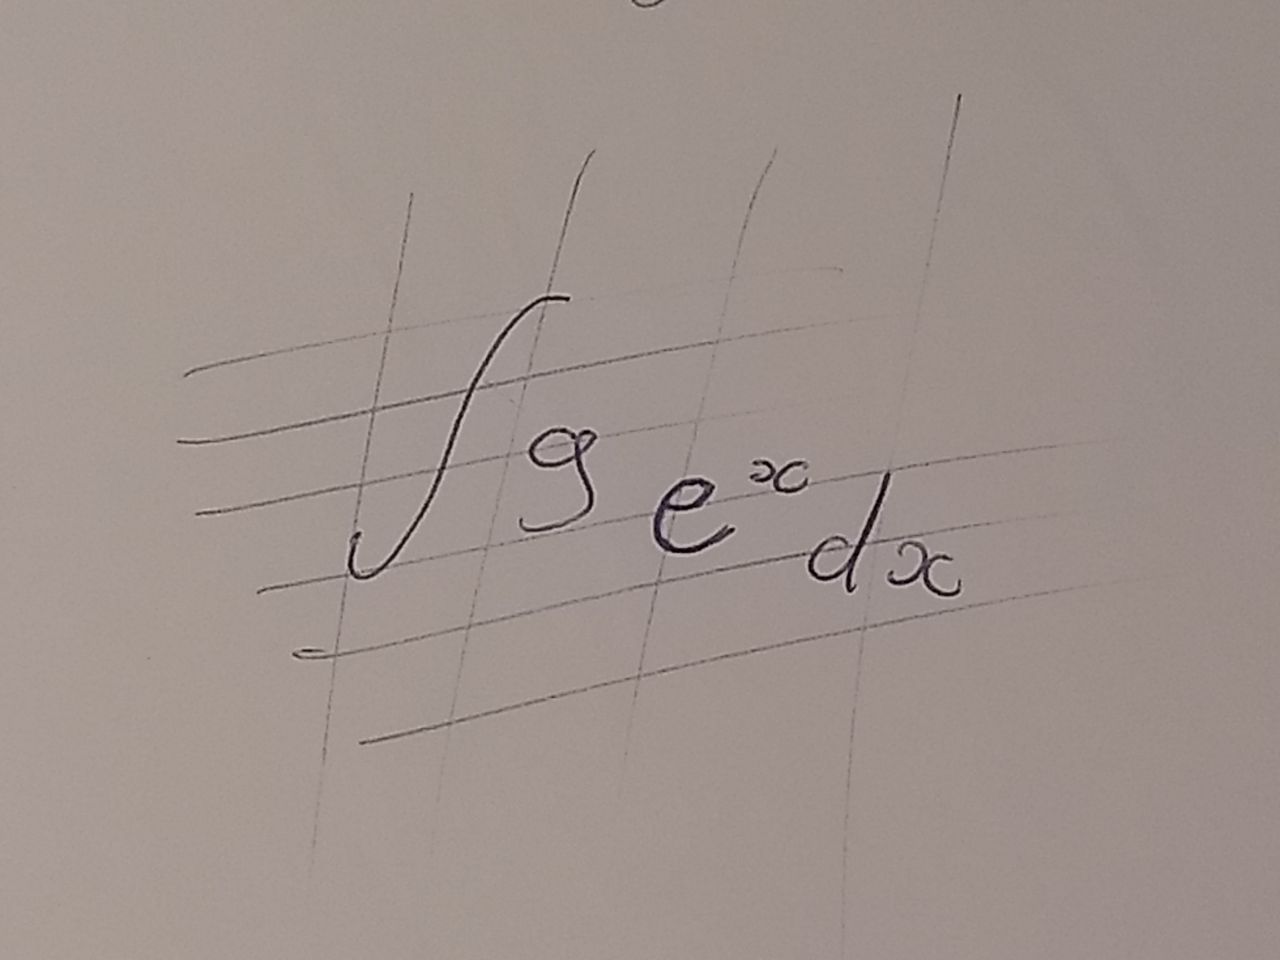 ∫ g e^x dx